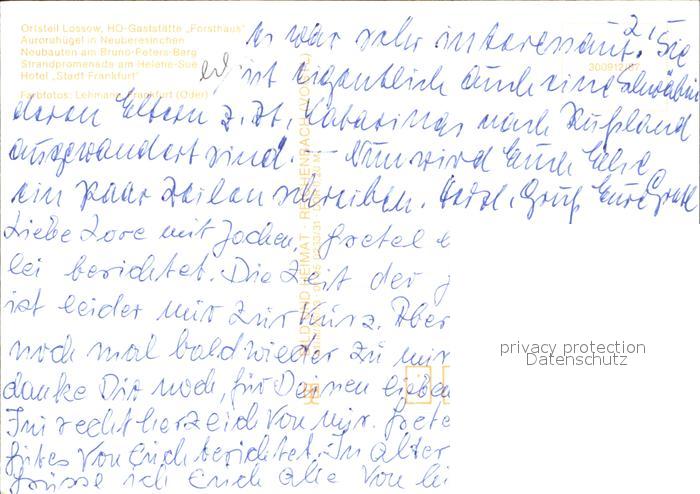 Ortsteil Lossow, HO-Gaststätte „Forsthaus"
Aurorahügel in Neuberesinchen
Neubauten am Bruno-Peters-Berg
Strandpromenade am Helene-See
Hotel „Stadt Frankfurt"
Farbfotos: Lehmann, Frankfurt (Oder)
300912/87
BILD UND HEIMAT · REICHENBACH (VOGTL)
2,
es war sehr interessant. Sie
ist eigentlich auch eine Schwäbin
deren Eltern z. Zt. Katarinas nach Rußland
ausgewandert sind. – Nun wird Euch Else
ein paar Zeilen schreiben. Herzl. Gruß Eure Gretel
Liebe Lore mit Jochen, Gretel
lei berichtet. Die Zeit der
ist leider nur zur Kurz. Aber
noch mal bald wieder zu mir
danke Dir noch, für Deinen lieben
recht herzlich von mir. Grete
gutes von Euch berichtet. In alter
grüsse ich Euch alle von
privacy protection
Datenschutz